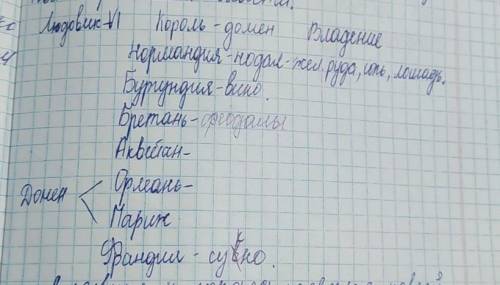 Людовик-VI Король-домен Владение
Нормандия-подал-жел.руда, лошадь.
Бургундия-вино.
Бретань-феодалы
Аквитан-
Домен Орлеань-
Париж
Фландия-сукно.